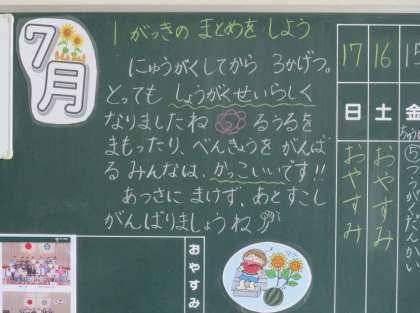 7月
1 がっきの まとめを しよう
にゅうがくしてから 3かげつ。
とっても しょうがくせいらしく
なりましたね るうるを
まもったり、べんきょうを がんば
る みんなは、かっこいいです!!
あっさに まけず、あとすこし
がんばりましょうね
17 16 15
日 土 金
おやすみ
おやすみ
おやすみ